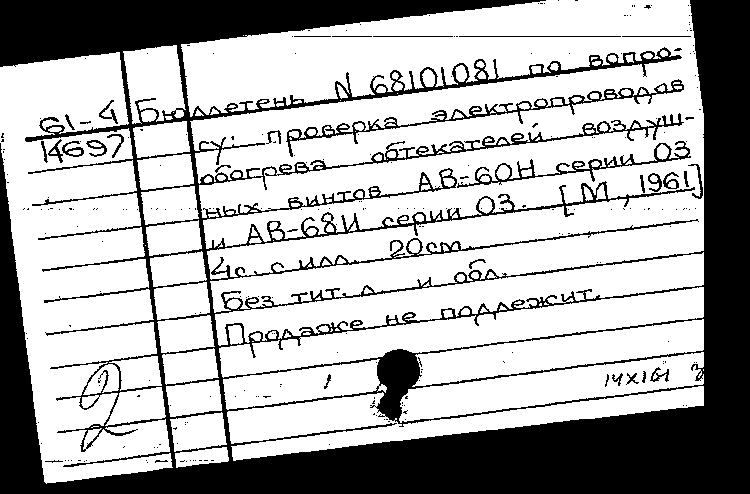 61-4 Бюллетень N 68101081 по вопро-
14697 су: проверка электропроводов
обогрева обтекателей воздуш-
ных винтов АВ-60Н серии 03
и АВ-68И серии 03. [М., 1961]
4с. с илл. 20см.
Без тит. л. и обл.
Продаже не подлежит.
2
14X161